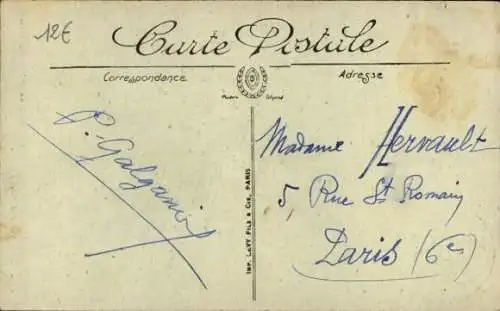 12€
Carte Postale
Correspondance
Adresse
P. Galganini
Madame Hervault
5, Rue St Romain
Paris (6e)
IMP. LEVY FILS & Cie, PARIS